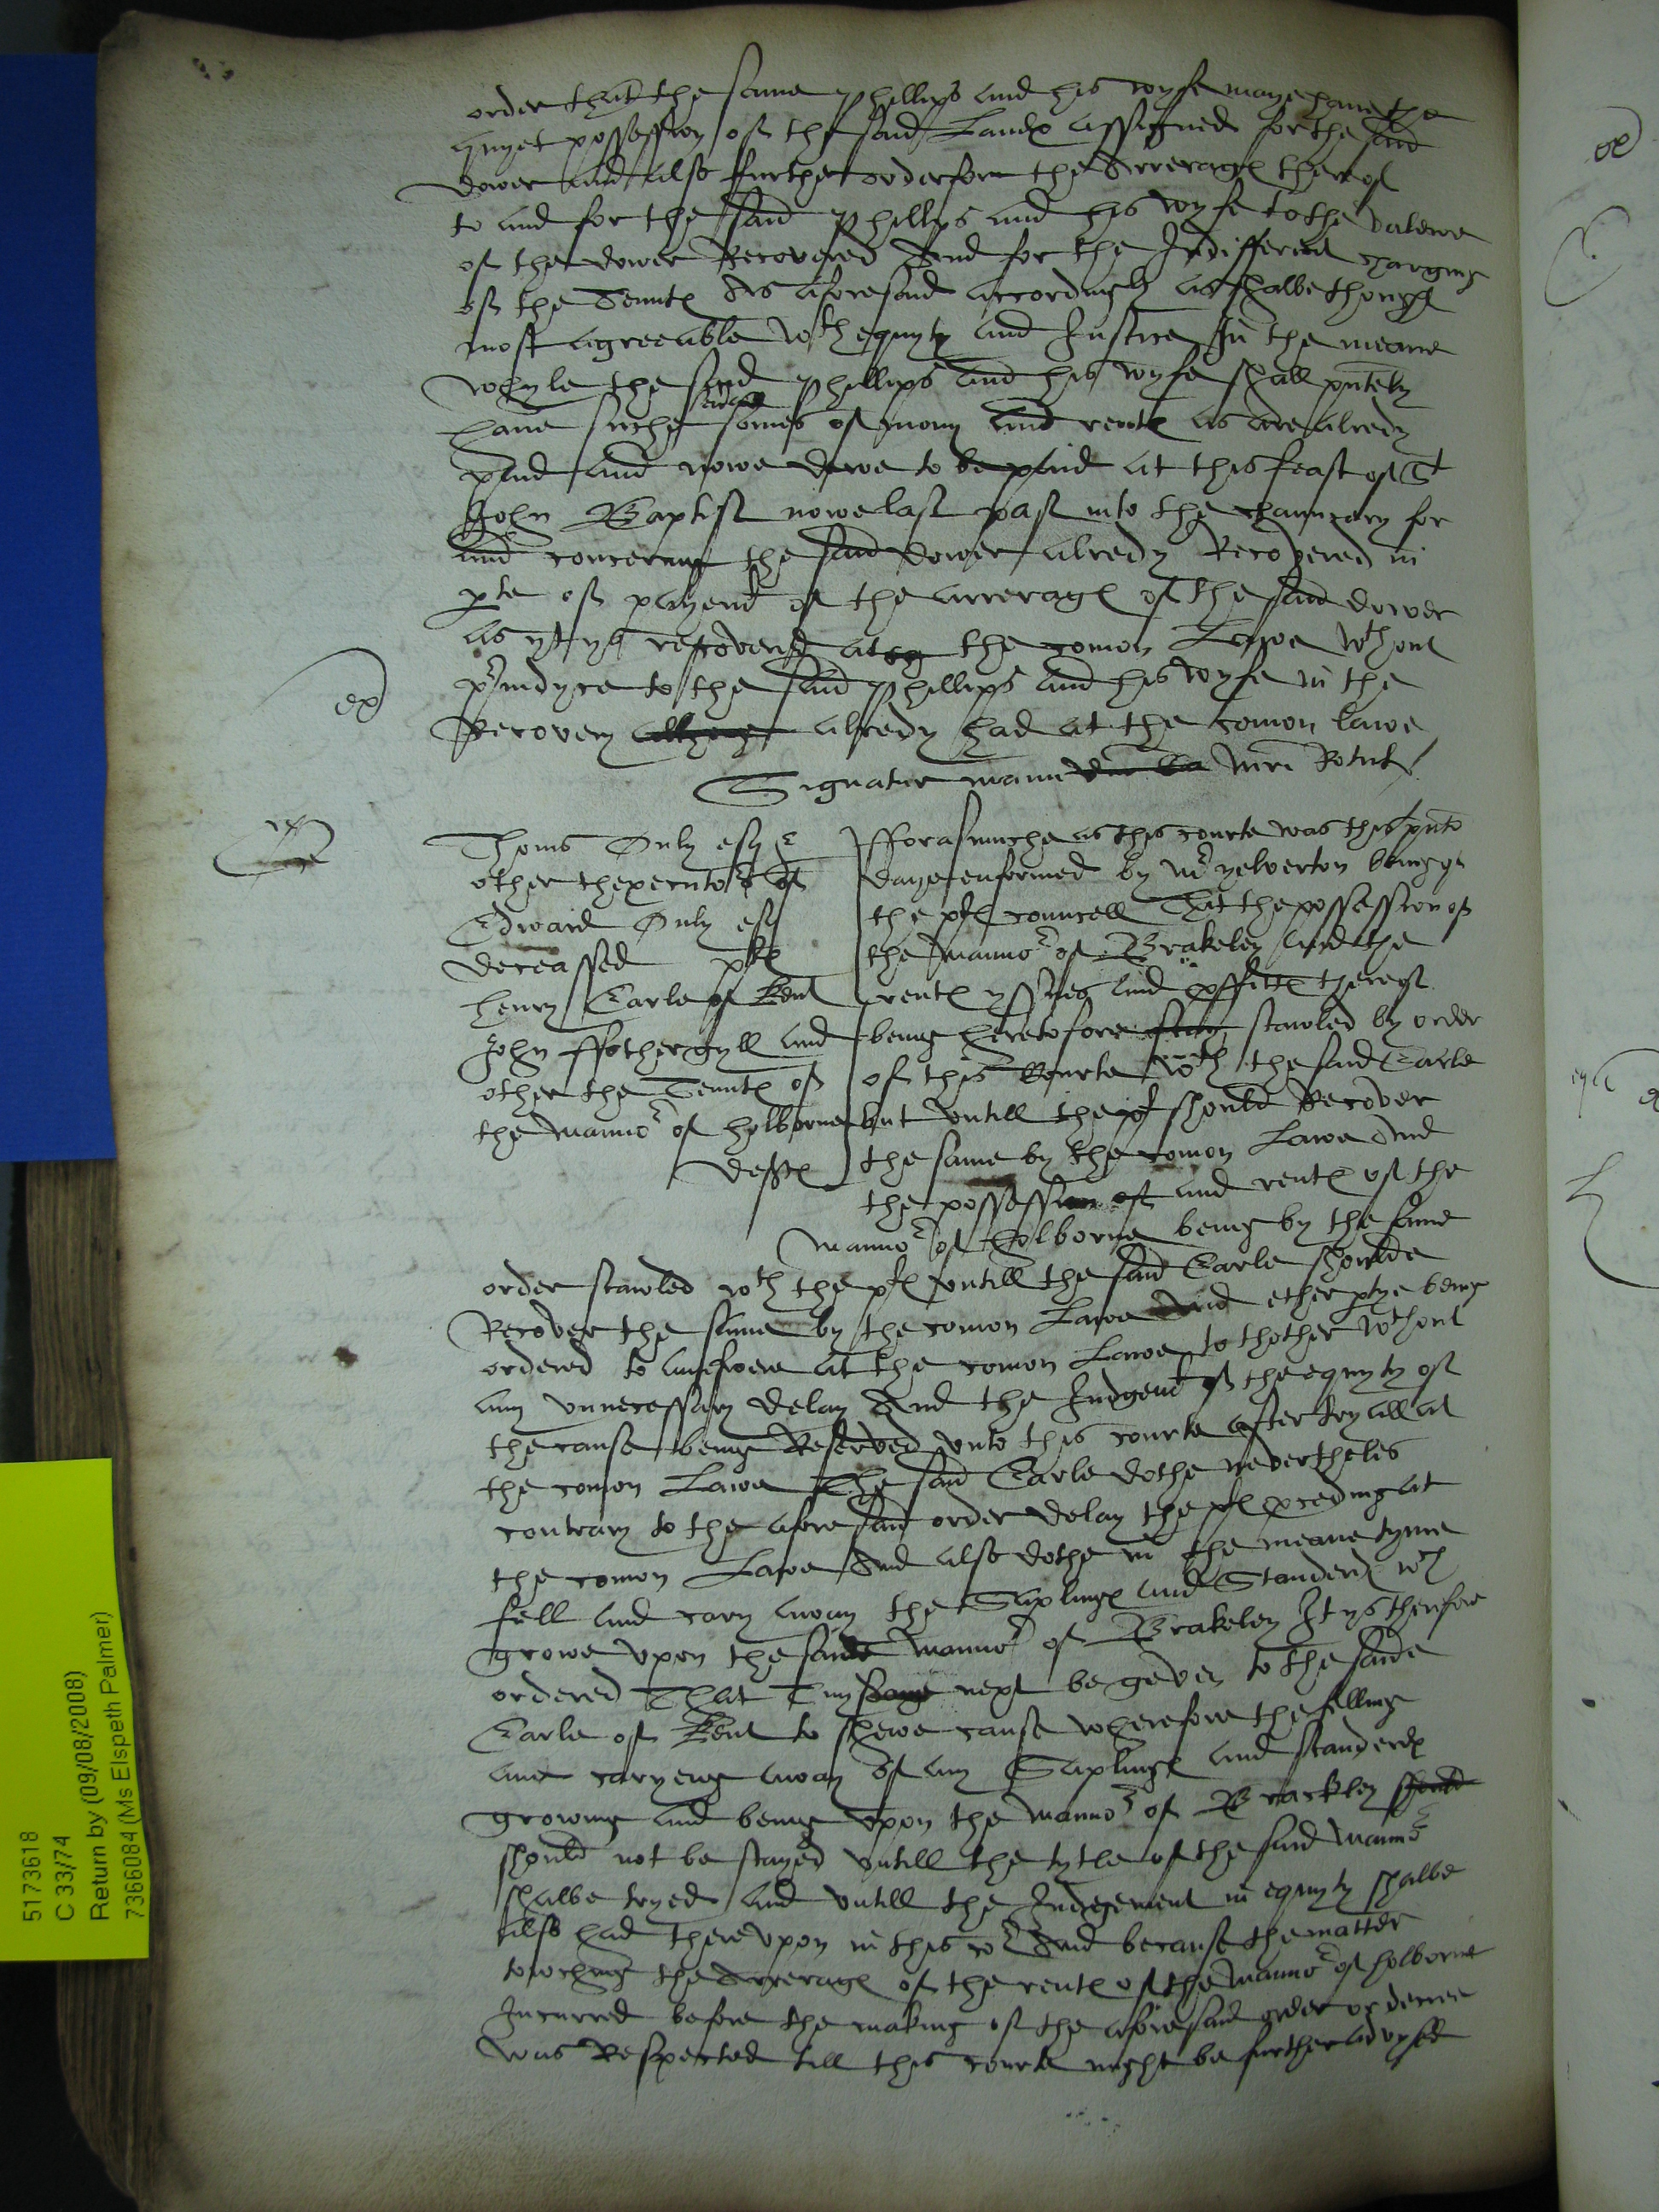 order that the same Phillips and his wyfe maye have the
quyet possession of the said Landes assigned for the said
dower and also further order for the Arrerages therof
to and for the said Phillips and his wyfe to the valewe
of the dower Recovered And for the Indifferent charging
of the Tenntes As aforesaid accordingly as shalbe thought
most agreeable wth equyty and Justice In the meane
whyle the said Phillips and his wyfe shall pntely
have suche somes of mony and rentes as are alredy
paid and nowe dewe to be paid at this feast of St
John Baptist nowe last past into the chauncery for
and concernyng the said dower alredy Recovered in
pte of payment of the arrerages of the said dower
as yt ys recovered at the comon Lawe wthout
priudyce to the said Phillips and his wyfe in the
Recovery alredy had at the comon lawe
Signatur manu mri Rotul
ex
Thoms Only esq &
other thexecutors of
Edward Only esq
deceassed pltes
Henry Earle of Kent
John ffothergyll and
other the Tenntes of
the manno of holborne
deftes
fforasmuche as this courte was this pnte
daye enformed by mr yelverton being of
the ples councell That the possession of
the manno of Brakeley and the
rentes yssues and proffittes therof
being heretofore stawled by order
of this Courte wth the said Earle
but untill the pl should Recover
the same by the comon Lawe And
the possession and rentes of the
manno of Holborne being by the same
order stawled wth the ples untill the said Earle shoulde
Recover the same by the comon Lawe And ether ptye being
ordered to answere at the comon Lawe to thother wthout
any unnecessary delay And the Judgent of the equyty of
the cause being Reserved unto this courte after tryall at
the comon Lawe The said Earle dothe nevertheles
contrary to the aforesaid order delay the ples pceding at
the comon Lawe And also dothe in the meane tyme
fell and cary away the Saplinges and Standerdes wch
growe upon the saide manno of Brakeley It ys therfore
ordered That next be geven to the saide
Earle of Kent to shewe cause wherefore the felling
and caryeng away of any Saplinges and standerdes
growing and being upon the manno of Brackley should
should not be stayed untill the tytle of the said manno
shalbe tryed and untill the Judgement in equyty shalbe
also had thereupon in this co And because the matter
towching the Arrerages of the rentes of the manno of holborne
Incurred before the making of the aforesaid order or decree
was Respected till this courte might be further advysed
5173618
C 33/74
Return by (09/08/2008)
7366084 (Ms Elspeth Palmer)